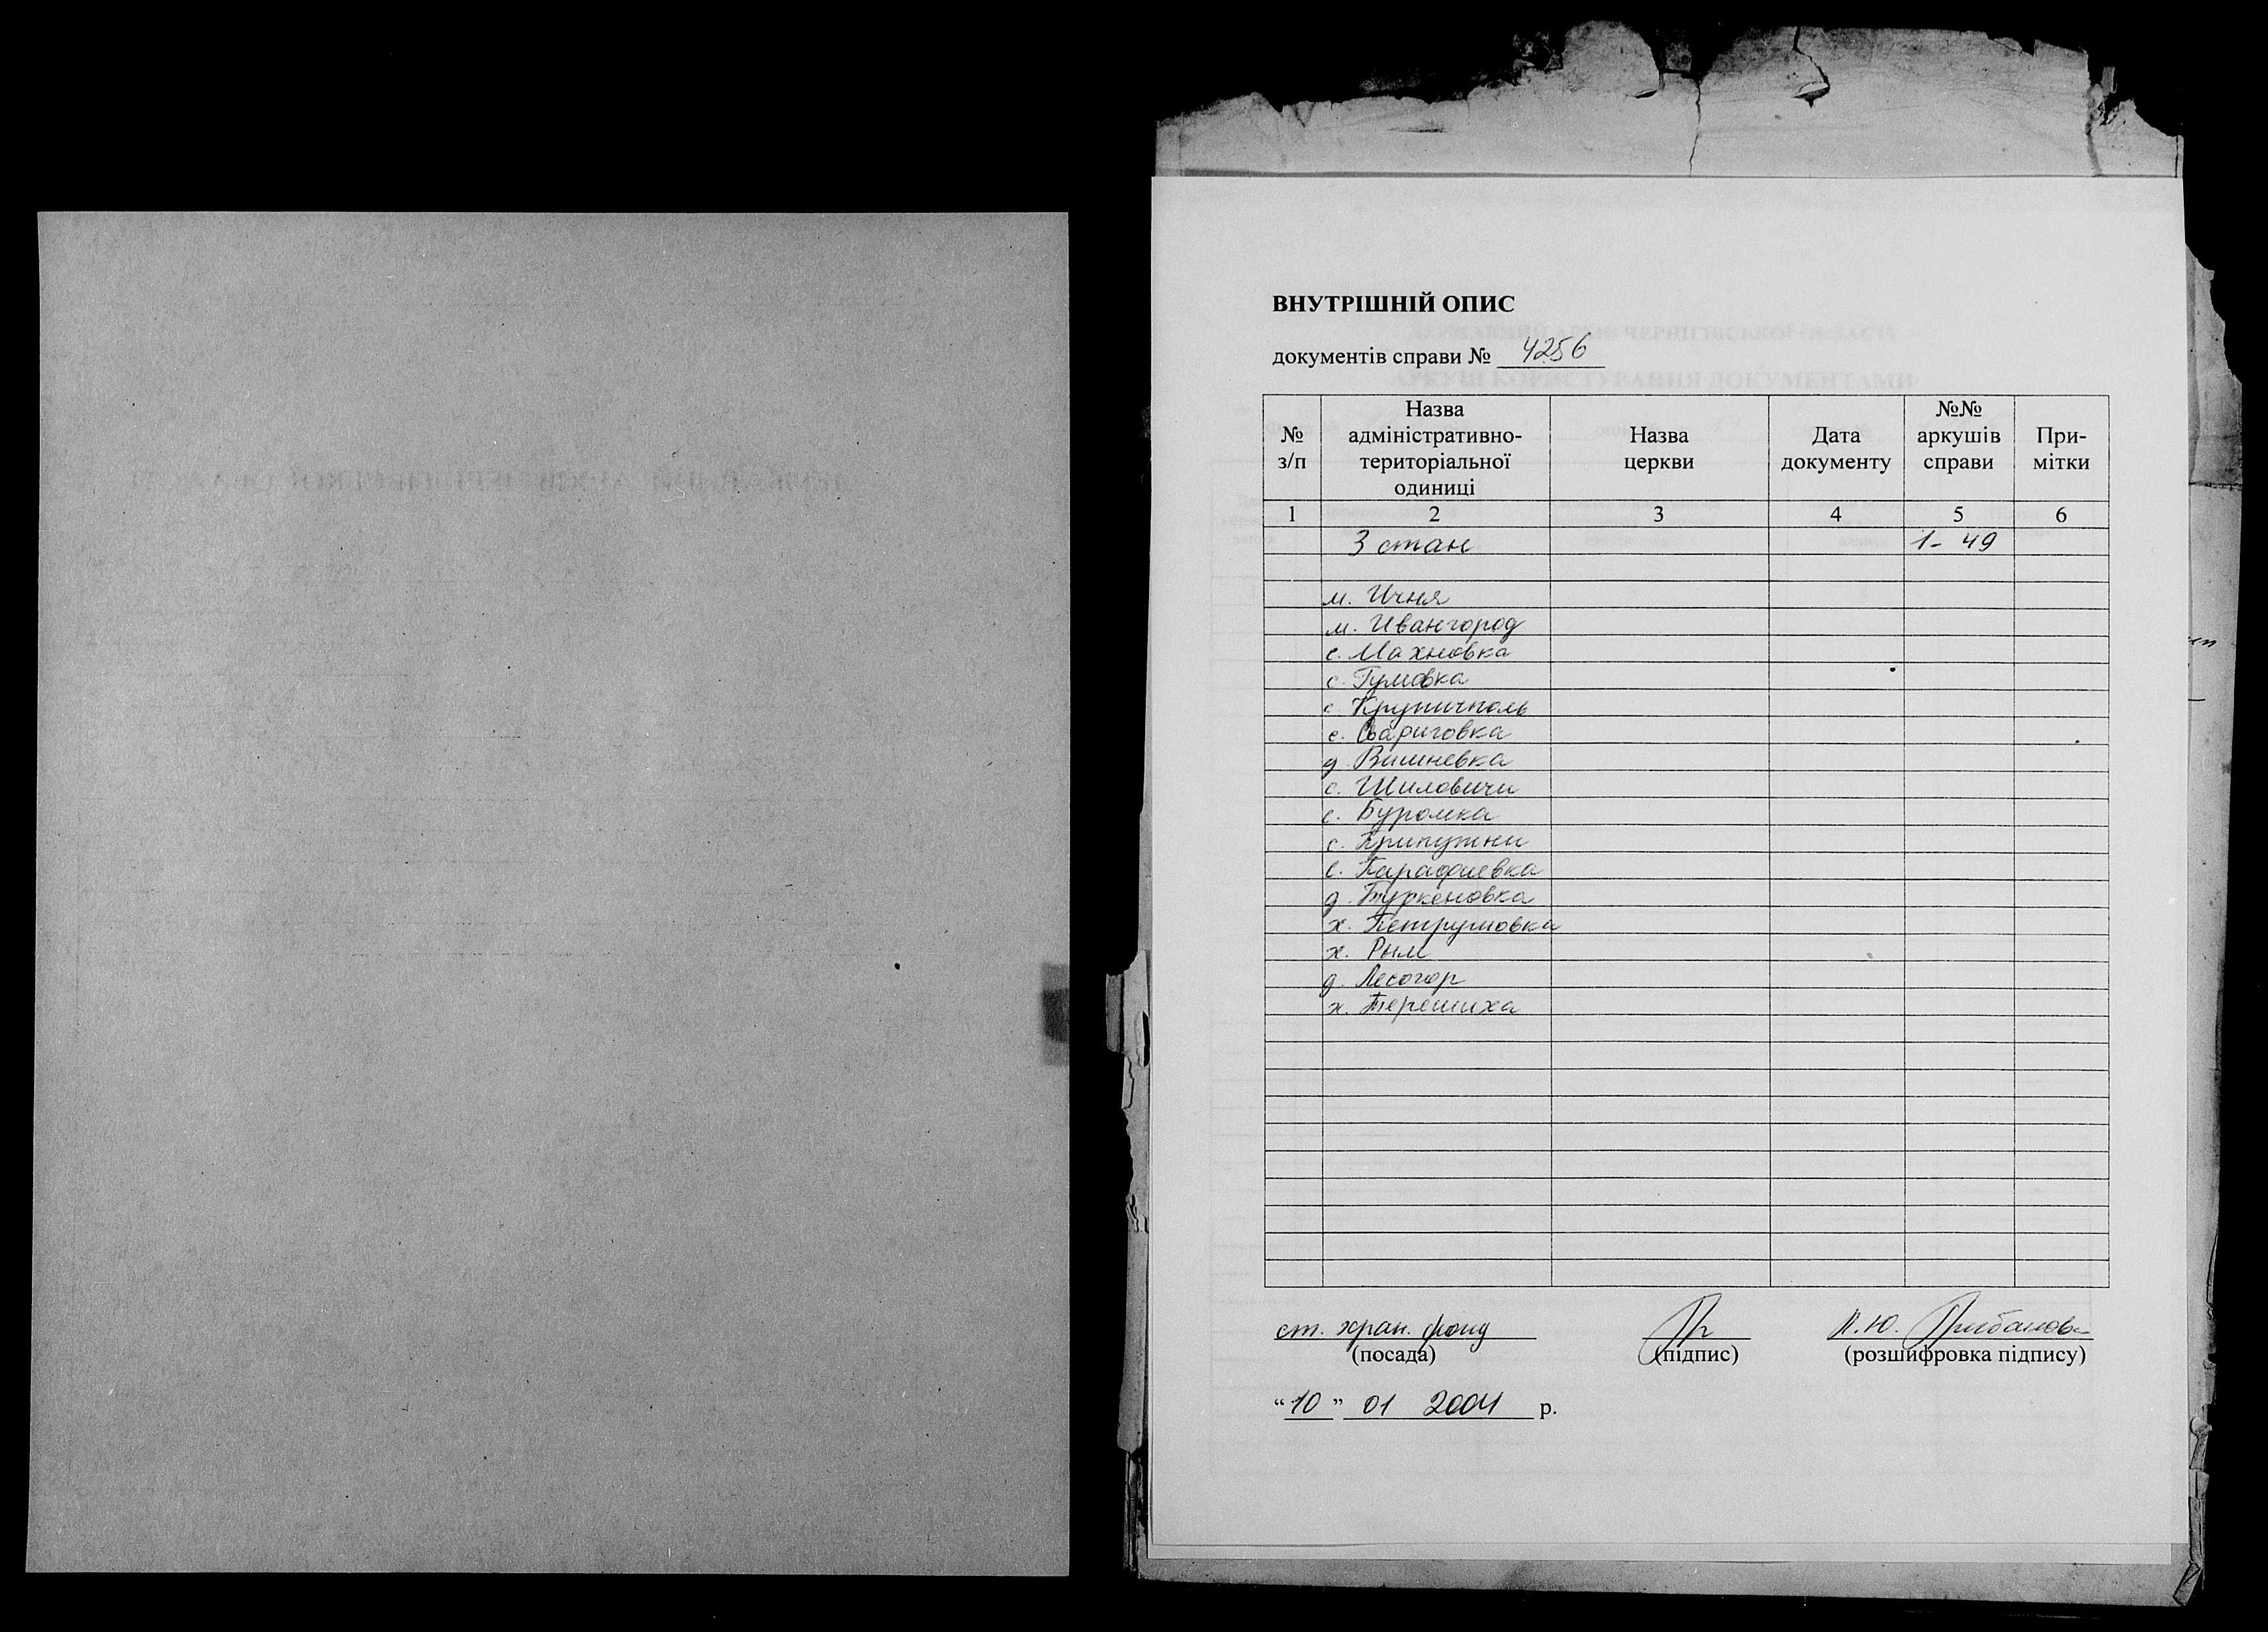 ВНУТРІШНІЙ ОПИС
документів справи № 4256
№ з/п
Назва адміністративно-територіальної одиниці
Назва церкви
Дата документу
№№ аркушів справи
При-мітки
1 2 3 4 5 6
3 стан 1-49
м. Ичня
м. Ивангород
с. Махновка
с. Гумовка
с. Крупичполь
с. Свариговка
д. Вишневка
с. Шиловичи
с. Буромка
с. Припутни
с. Парафиевка
д. Буркеновка
х. Петрушовка
х. Рым
д. Лесогор
х. Терешиха
ст. хран. фонд
(посада) (підпис) (розшифровка підпису)
П.Ю.
“10” 01 2004 р.